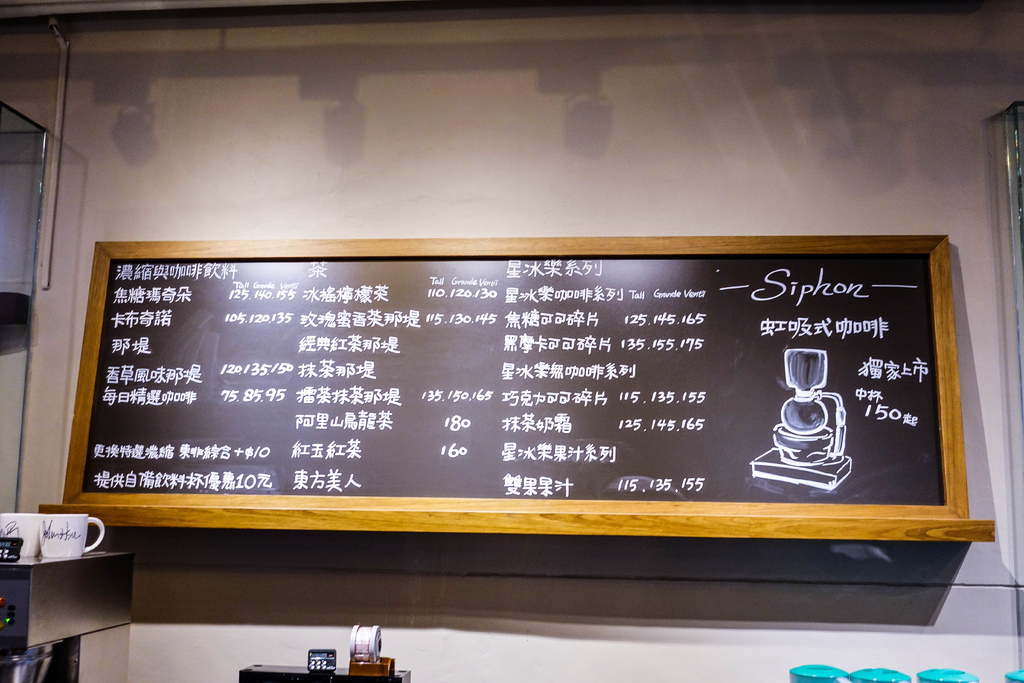 濃縮與咖啡飲料
Tall Grande Venti
焦糖瑪奇朵 125.140.155
卡布奇諾 105.120.135
那堤
香草風味那堤 120.135/150
每日精選咖啡 75.85.95
更換特選濃縮 東啡綜合+$10
提供自備飲料杯優惠10元
茶
Tall Grande Venti
冰搖檸檬茶 110.120.130
玫瑰蜜香茶那堤 115.130.145
經典紅茶那堤
抹茶那堤
擂茶抹茶那堤 135.150.165
阿里山烏龍茶 180
紅玉紅茶 160
東方美人
星冰樂系列
星冰樂咖啡系列 Tall Grande Venti
焦糖可可碎片 125.145.165
黑摩卡可可碎片 135.155.175
星冰樂無咖啡系列
巧克力可可碎片 115.135.155
抹茶奶霜 125.145.165
星冰樂果汁系列
雙果果汁 115.135.155
—Siphon—
虹吸式咖啡
獨家上市
中杯
150起